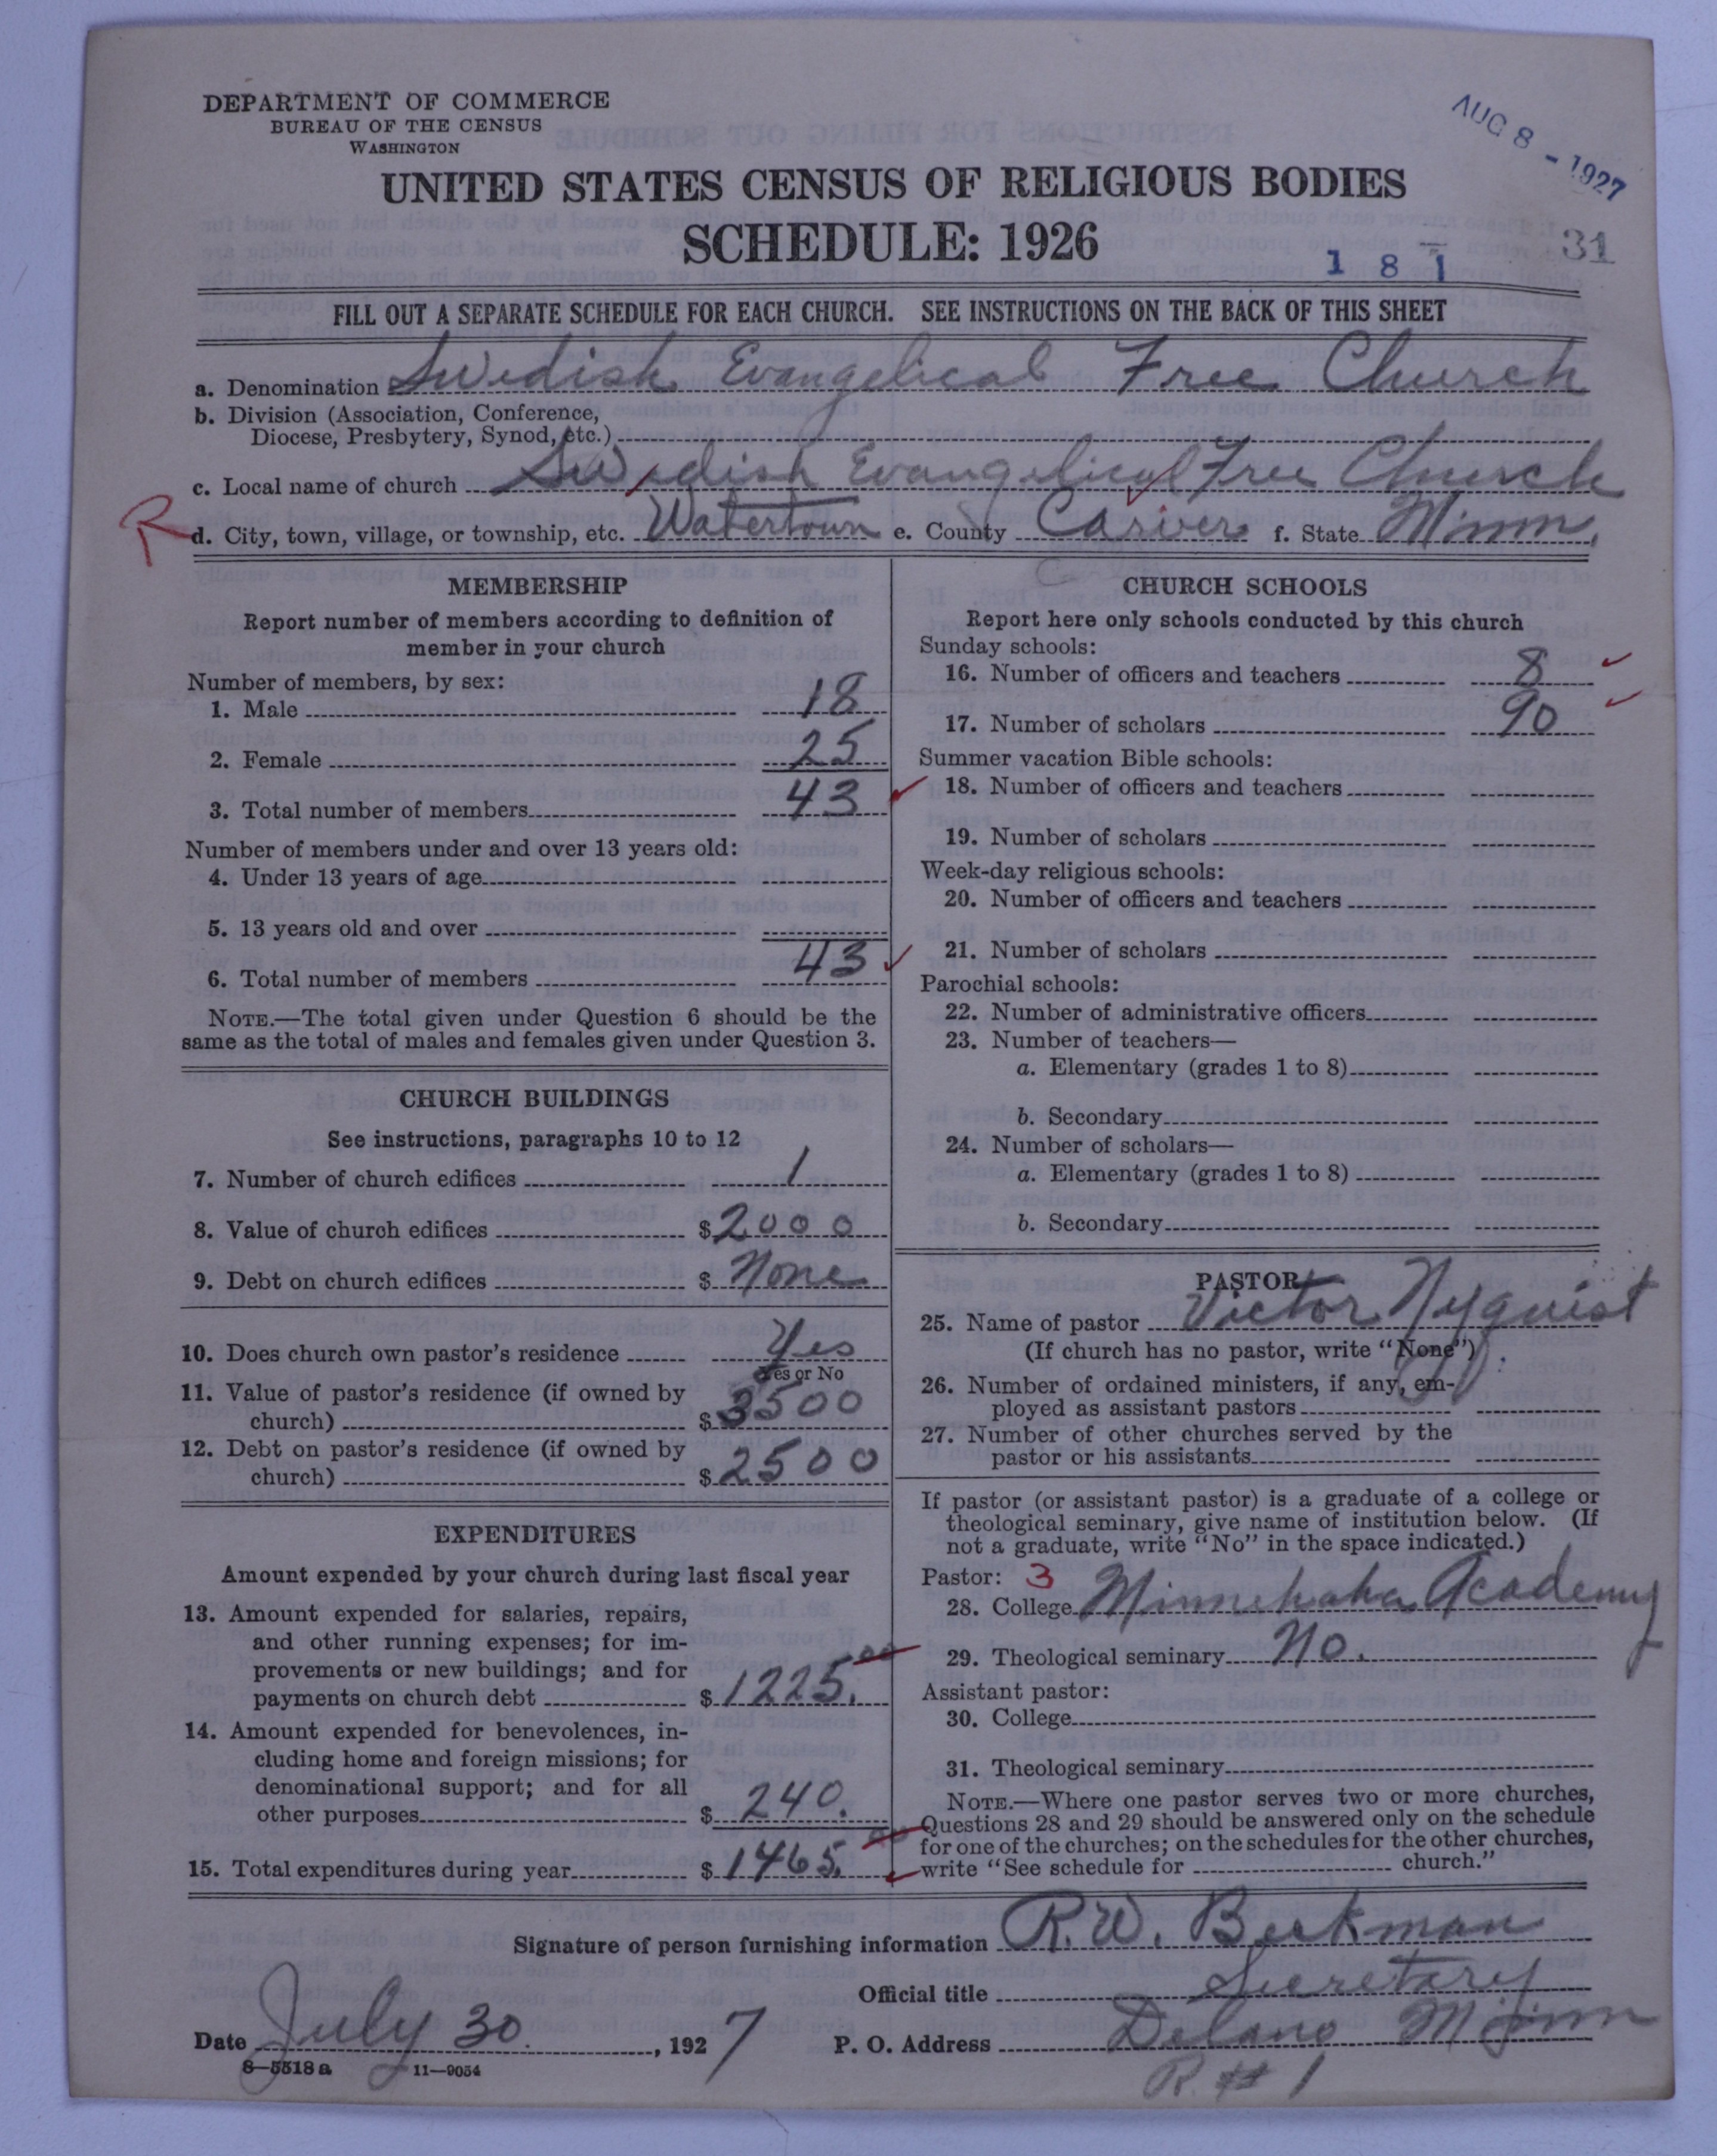 DEPARTMENT OF COMMERCE
BUREAU OF THE CENSUS
WASHINGTON
AUG 8 - 1927
UNITED STATES CENSUS OF RELIGIOUS BODIES
SCHEDULE: 1926
1 8 1
31
FILL OUT A SEPARATE SCHEDULE FOR EACH CHURCH. SEE INSTRUCTIONS ON THE BACK OF THIS SHEET
a. Denomination Swedish Evangelical Free Church
b. Division (Association, Conference,
Diocese, Presbytery, Synod, etc.)
c. Local name of church Swedish Evangelical Free Church
R d. City, town, village, or township, etc. Watertown e. County Carver f. State Minn.
MEMBERSHIP
Report number of members according to definition of
member in your church
Number of members, by sex:
1. Male 18
2. Female 25
3. Total number of members 43
Number of members under and over 13 years old:
4. Under 13 years of age
5. 13 years old and over
6. Total number of members 43
NOTE.—The total given under Question 6 should be the
same as the total of males and females given under Question 3.
CHURCH BUILDINGS
See instructions, paragraphs 10 to 12
7. Number of church edifices 1
8. Value of church edifices $ 2000
9. Debt on church edifices $ None
10. Does church own pastor's residence Yes
Yes or No
11. Value of pastor's residence (if owned by
church) $ 3500
12. Debt on pastor's residence (if owned by
church) $ 2500
EXPENDITURES
Amount expended by your church during last fiscal year
13. Amount expended for salaries, repairs,
and other running expenses; for im-
provements or new buildings; and for
payments on church debt $ 1225.00
14. Amount expended for benevolences, in-
cluding home and foreign missions; for
denominational support; and for all
other purposes $ 240.
15. Total expenditures during year $ 1465.00
CHURCH SCHOOLS
Report here only schools conducted by this church
Sunday schools:
16. Number of officers and teachers 8
17. Number of scholars 90
Summer vacation Bible schools:
18. Number of officers and teachers
19. Number of scholars
Week-day religious schools:
20. Number of officers and teachers
21. Number of scholars
Parochial schools:
22. Number of administrative officers
23. Number of teachers—
a. Elementary (grades 1 to 8)
b. Secondary
24. Number of scholars—
a. Elementary (grades 1 to 8)
b. Secondary
PASTOR
25. Name of pastor Victor Nyquist
(If church has no pastor, write "None")
26. Number of ordained ministers, if any, em-
ployed as assistant pastors
27. Number of other churches served by the
pastor or his assistants
If pastor (or assistant pastor) is a graduate of a college or
theological seminary, give name of institution below. (If
not a graduate, write "No" in the space indicated.)
Pastor: 3
28. College Minnehaha Academy
29. Theological seminary No.
Assistant pastor:
30. College
31. Theological seminary
NOTE.—Where one pastor serves two or more churches,
Questions 28 and 29 should be answered only on the schedule
for one of the churches; on the schedules for the other churches,
write "See schedule for church."
Signature of person furnishing information R. W. Beckman
Official title Secretary
Date July 30 , 1927 P. O. Address Delano Minn
R # 1
8—5518a 11—9054